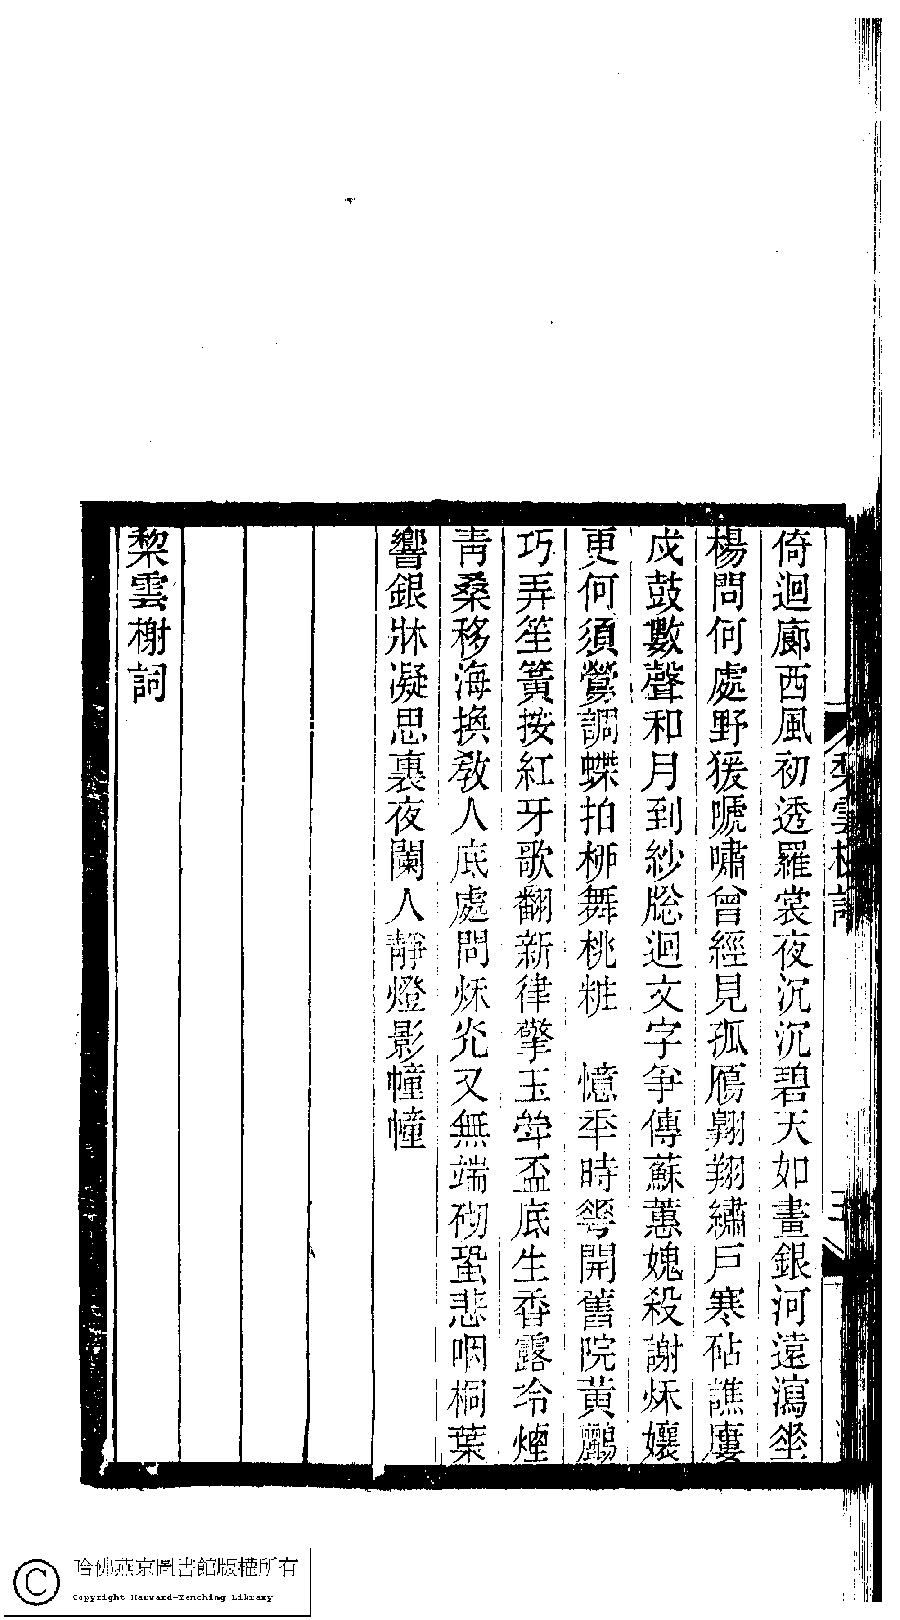 倚迴廊西風初透羅裳夜沉沉碧天如畫銀河遠瀉坐
楊問何處野猨嗁嘯曾經見孤鴈翱翔繡戶寒砧譙廔
戍鼓數聲和月到紗牕迴文字爭傳蘇蕙媿殺謝秌孃
更何須鶯調蝶拍桺舞桃粧　憶秊時蕚開舊院黃鸝
巧弄笙簧按紅牙歌翻新律擎玉斝盃底生香露冷煙
青桑移海換敎人底處問秌光又無端砌蛩悲咽桐葉
響銀牀凝思裏夜闌人靜燈影幢幢
棃雲榭詞
棃雲榭詞
五
哈佛燕京圖書館版權所有
Copyright Harvard-Yenching Library